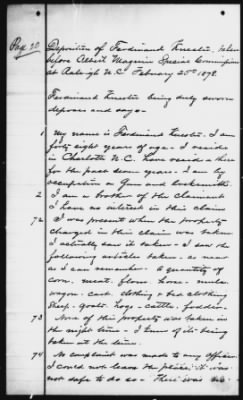 Pg. 20
Deposition of Ferdinand Kuester, taken
before Albert Magruder Special Commissioner
at Raleigh N.C. February 25th 1878.
Ferdinand Kuester being duly sworn
deposes and says-
1 My name is Ferdinand Kuester. I am
forty eight years of age- I reside
in Charlotte N.C. have resided there
for the past years- I am by
occupation a Gun and locksmith.
2 I am a brother of the claimant
I have no interest in this claim
72 I was present when the property
charged in this claim was taken
I actually saw it taken- I saw the
following articles taken- as near
as I can remember- A quantity of
corn- meat- flour- horse- mules
wagon- cart- clothing & bed clothing
sheep- goats- hogs- cattle- fodder-
73 None of this property was taken in
the night time- I knew of its being
taken at the time.
74 No complaint was made to any officer
I could not leave the place, it was
not safe to do so- There was